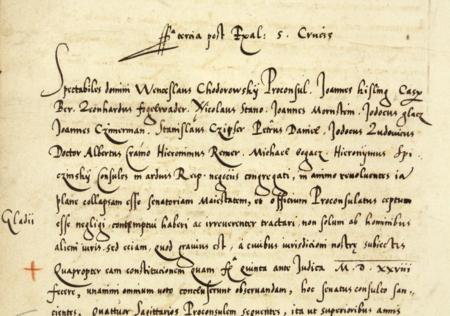 fr̃a tercia post Exal: S. Crucis
Spectabiles domini Wenceslaus Chodorowsky Proconsul. Joannes kisling Casp
Ber. Leonhardus Nicolaus Stano. Joannes Mornstem. Jodocus glacz
Joannes Czimerman. Stanislaus Czipser Petrus Daniel. Jodocus Ludovicus
Doctor Albertus Hieronimus Remer. Michael Hieronymus Spi
czmsky Consules in arduis Reip. negociis congregati, in animo revolventes ia
plane collapsam esse Senatoriam Maiestatem, et officium Proconsulatus ceptum
esse negligi, contemptui haberi ac irreverenter tractari, non solum ab hominibus
Gladii
alieni iuris, sed eciam, quod gravius est, a civibus iurisdicioni nostrę subiectis
Quapropter eam constitucionem quam fr̃ quinta ante Judica M. D. xxviii
fecere, unanimi omnium voto concluserunt observandam, hoc senatus consulto san,
cientes. Quattuor Sagittarios Proconsulem sequentes, ita ut superioribus annis